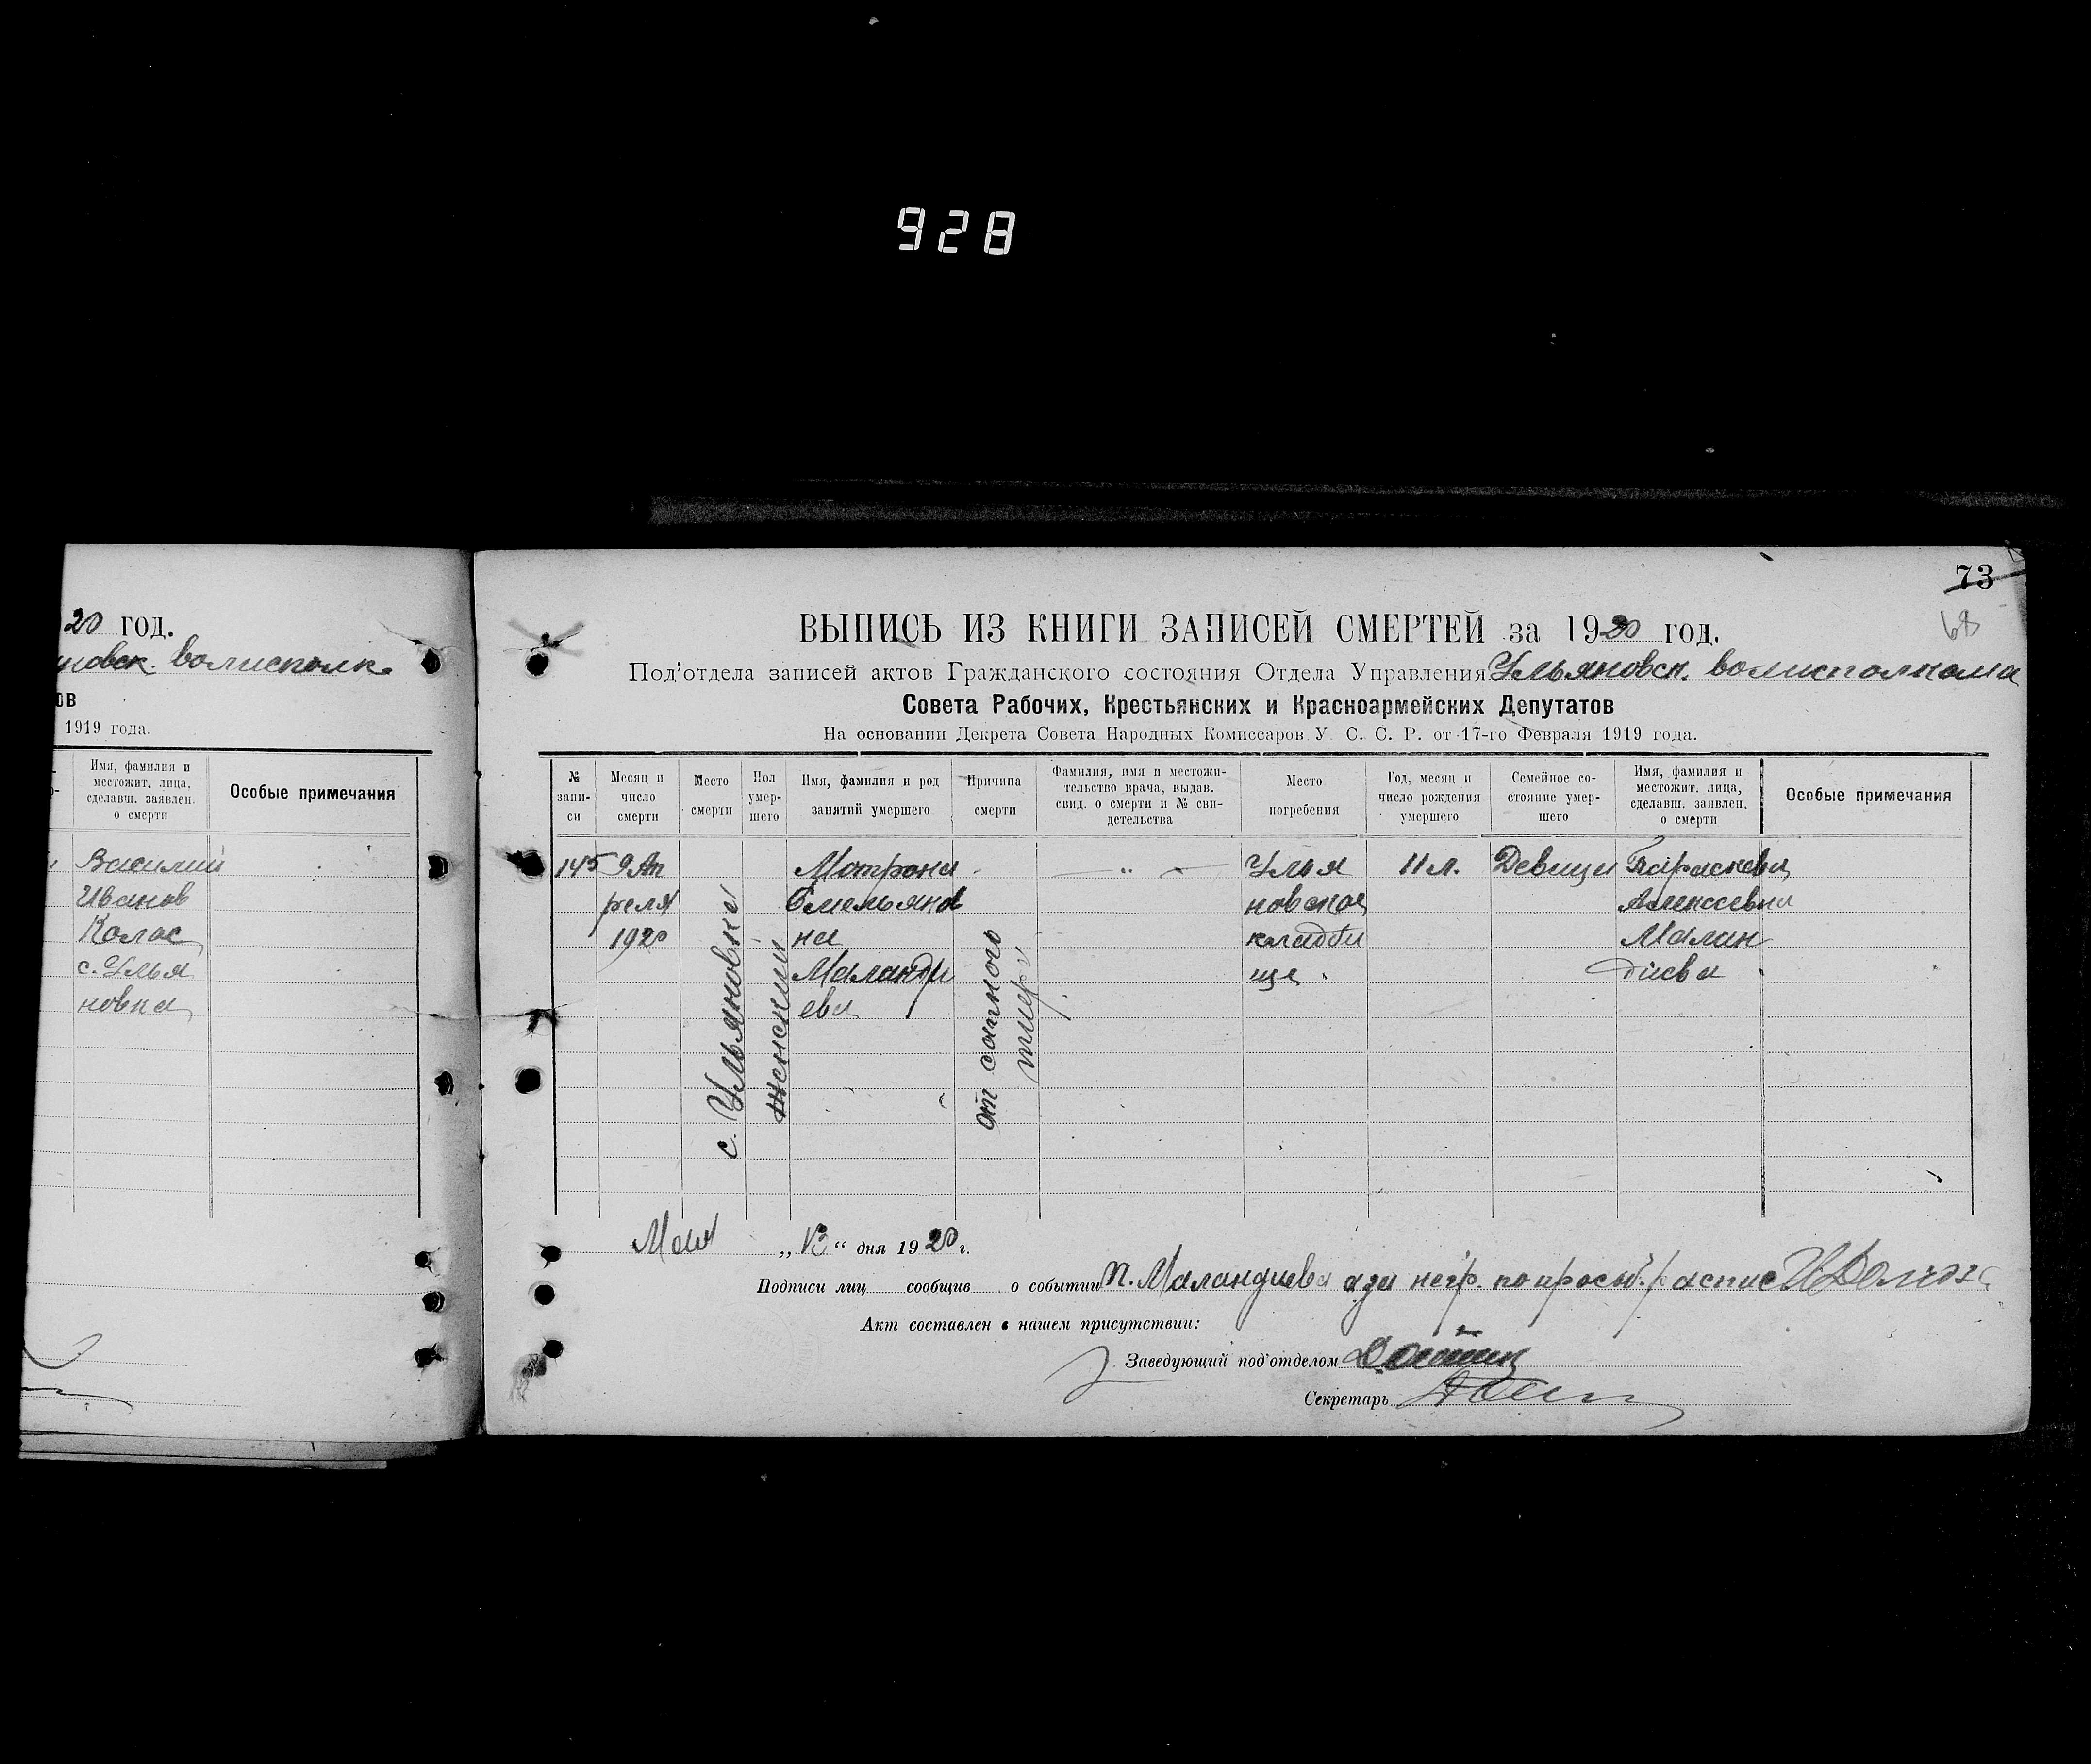 928
20 год.
новск. волисполк.
ов
1919 года.
Имя, фамилия и
местожит. лица,
сделавш. заявлен.
о смерти
Особые примечания
Василий
Иванов
Колос
с. Улья
новка
73
68
ВЫПИСЬ ИЗ КНИГИ ЗАПИСЕЙ СМЕРТЕЙ за 1920 год.
Под'отдела записей актов Гражданского состояния Отдела Управления Ульяновск. волисполкома
Совета Рабочих, Крестьянских и Красноармейских Депутатов
На основании Декрета Совета Народных Комиссаров У. С. С. Р. от 17-го Февраля 1919 года.
№
запи-
си
Месяц и
число
смерти
Место
смерти
Пол
умер-
шего
Имя, фамилия и род
занятий умершего
Причина
смерти
Фамилия, имя и местожи-
тельство врача, выдав.
свид. о смерти и № сви-
детельства
Место
погребения
Год, месяц и
число рождения
умершего
Семейное со-
стояние умер-
шего
Имя, фамилия и
местожит. лица,
сделавш. заявлен.
о смерти
Особые примечания
145
9 Ап
реля
1920
с. Ульяновка
женский
Мотрона
Емельянов
на
Маланди
ева
от сапного
— „ —
Улья
новское
кладби
ще
11 л.
Девица
Параскева
Алексеевна
Малан
диева
Мая „13“ дня 1920 г.
Подписи лиц сообщив о событии П. Маландиева а за негр. по просьб. распис
Акт составлен в нашем присутствии:
Заведующий под'отделом
Секретарь